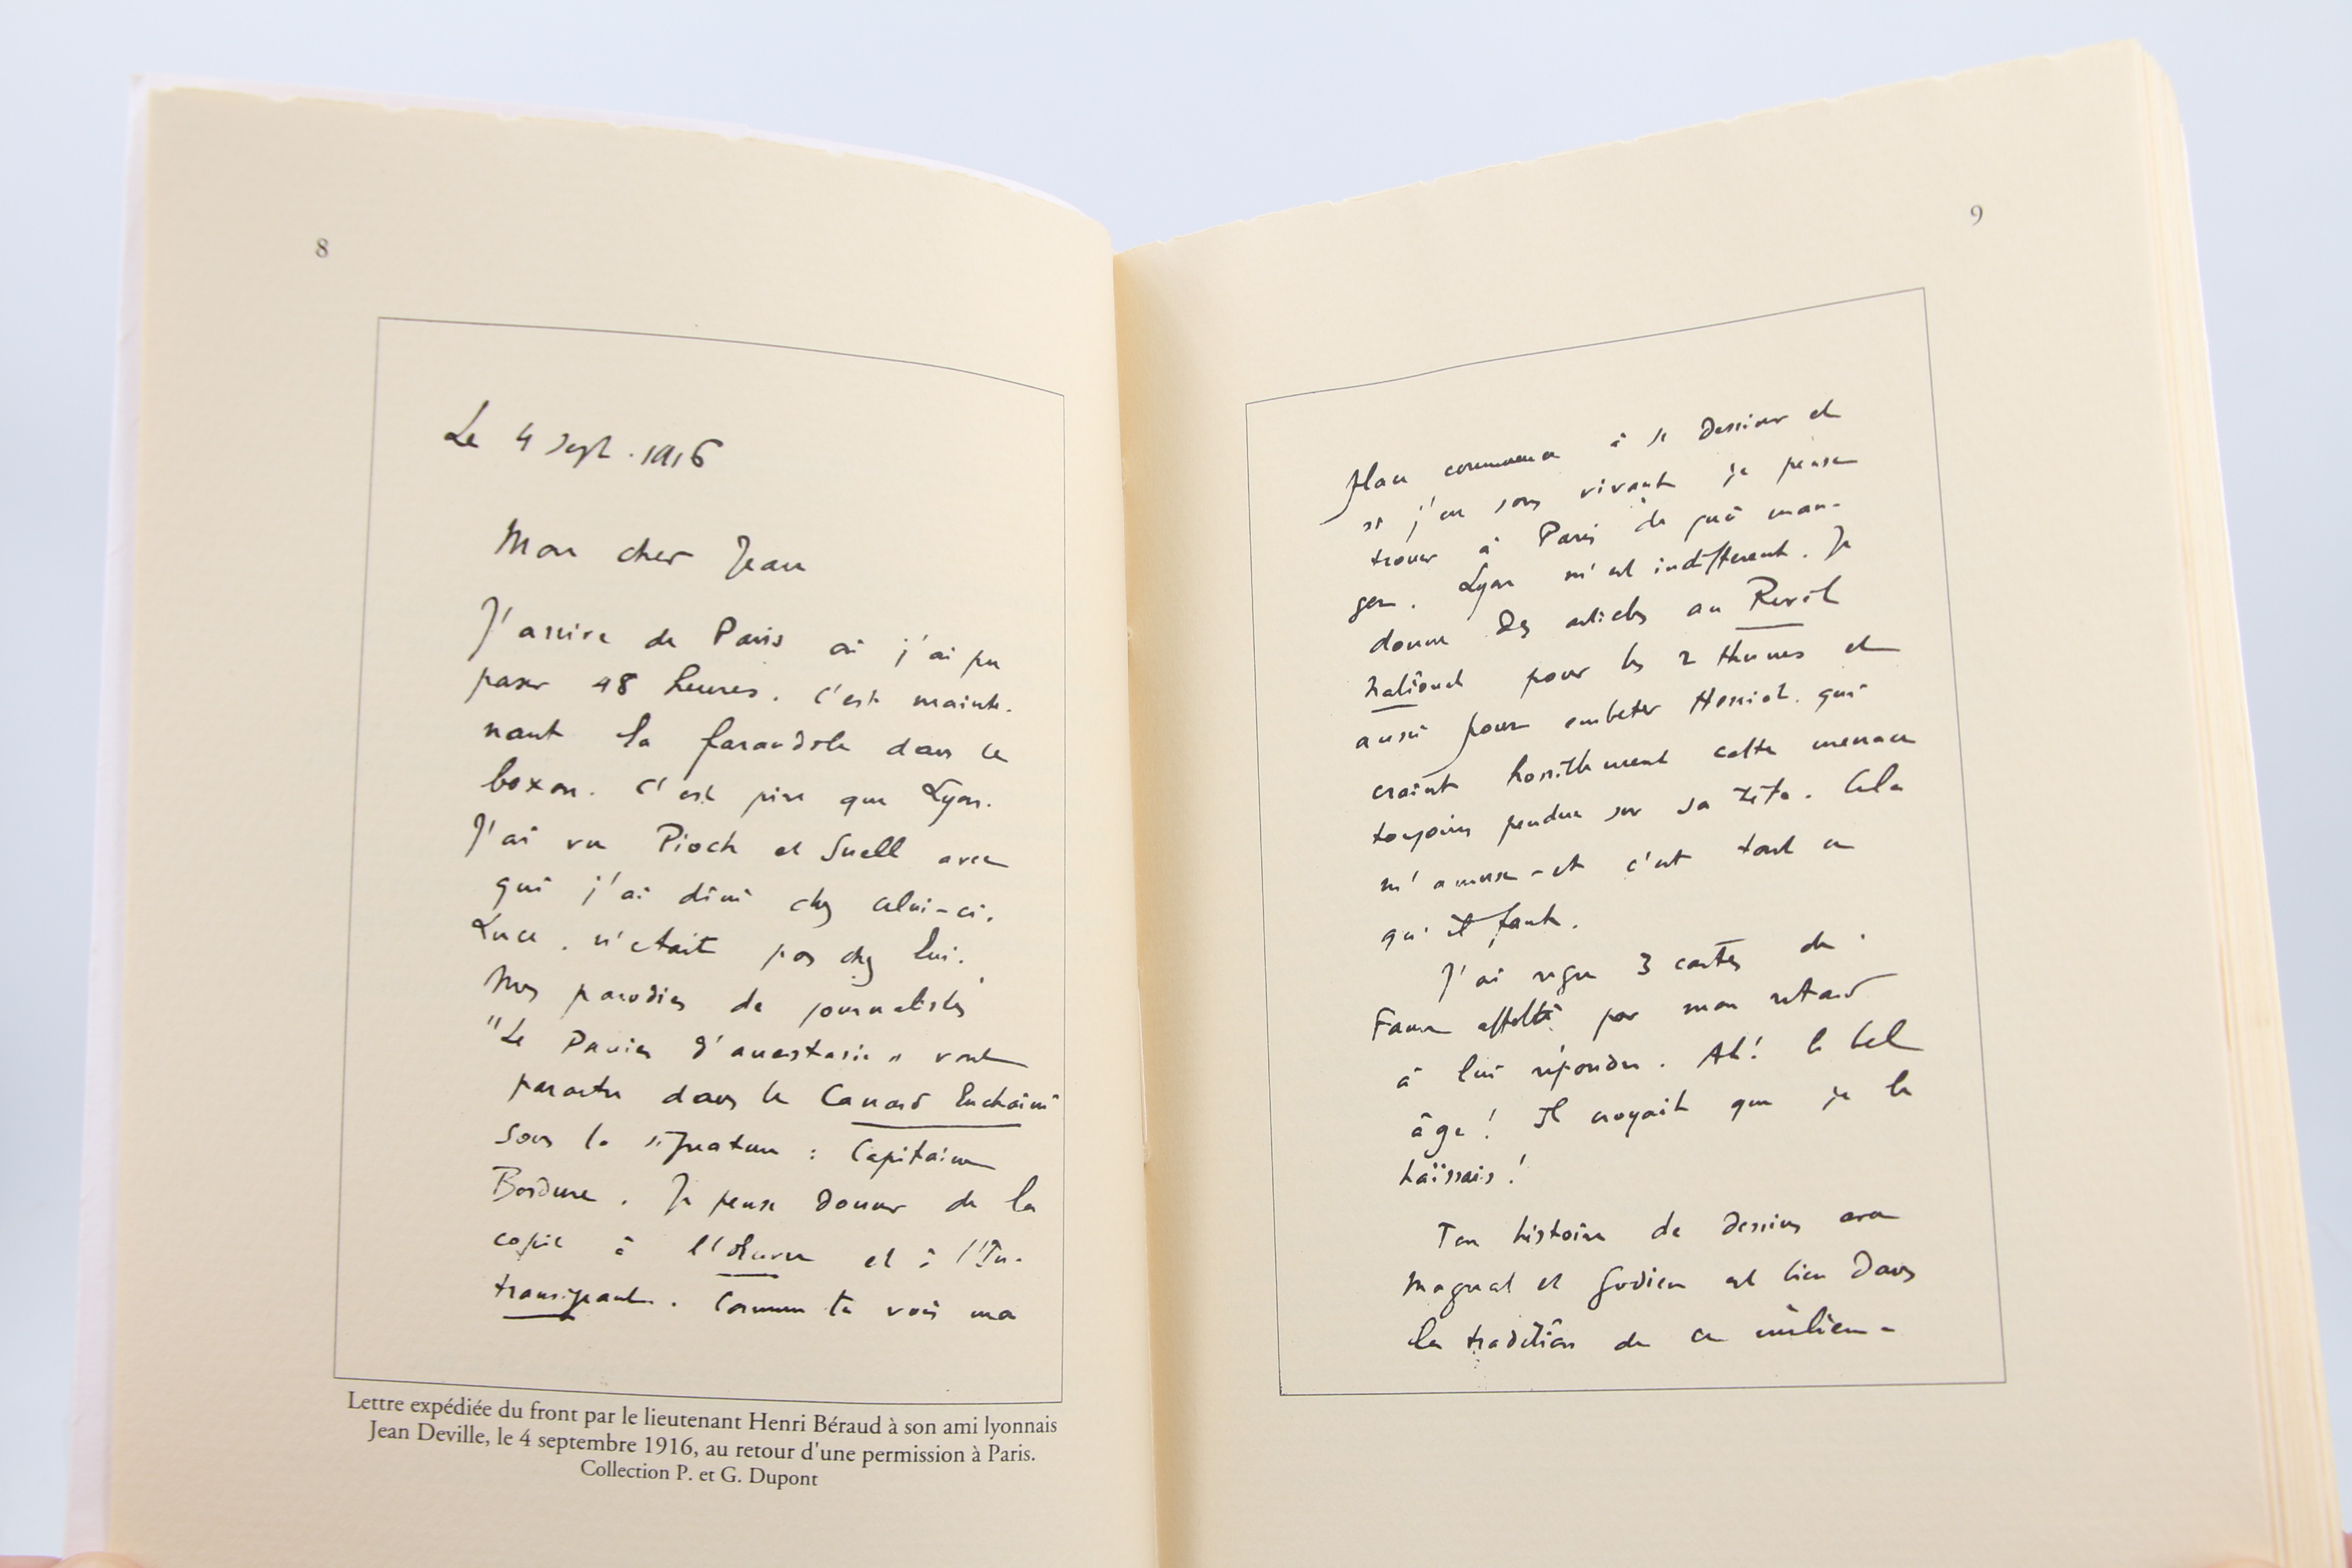 8
Le 4 sept. 1916
Mon cher Jean
J'arrive de Paris où j'ai pu
passer 48 heures. C'est mainte-
nant la farandole dans ce
boxon. C'est pire que Lyon.
J'ai vu Pioch et Snell avec
qui j'ai dîné chez celui-ci.
Luce n'était pas chez lui.
Mes parodies de journalistes
"Le Panier d'anastasie" vont
paraître dans le Canard Enchaîné
sous la signature : Capitaine
Bordure. Je pense donner de la
copie à l'Œuvre et à l'In-
transigeant. Comme tu vois ma
Lettre expédiée du front par le lieutenant Henri Béraud à son ami lyonnais
Jean Deville, le 4 septembre 1916, au retour d'une permission à Paris.
Collection P. et G. Dupont
9
place commence à se dessiner et
si j'en sors vivant je pense
trouver à Paris de quoi man-
ger. Lyon m'est indifférent. Je
donne des articles au Réveil
National pour les 2 thunes et
aussi pour embêter Herriot qui
craint horriblement cette menace
toujours pendue sur sa tête. Cela
m'amuse - et c'est tout ce
qu'il faut.
J'ai reçu 3 cartes de
Faure affolé par mon retard
à lui répondre. Ah! le bel
âge! Il croyait que je le
haïssais!
Ton histoire de dessins avec
Magnat et Godien est bien dans
la tradition de ce milieu -